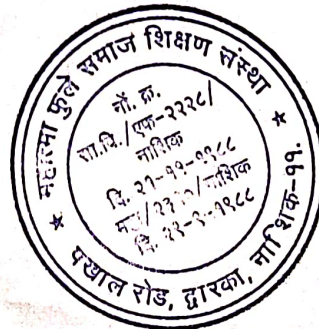 ★ महात्मा फुले समाज शिक्षण संस्था ★
नों. क्र.
सा.वि./एफ-२२२८/
नाशिक
दि. २१-११-१९८८
/नाशिक
दि. २१-९-१९८८
पखाल रोड, द्वारका, नाशिक-११.